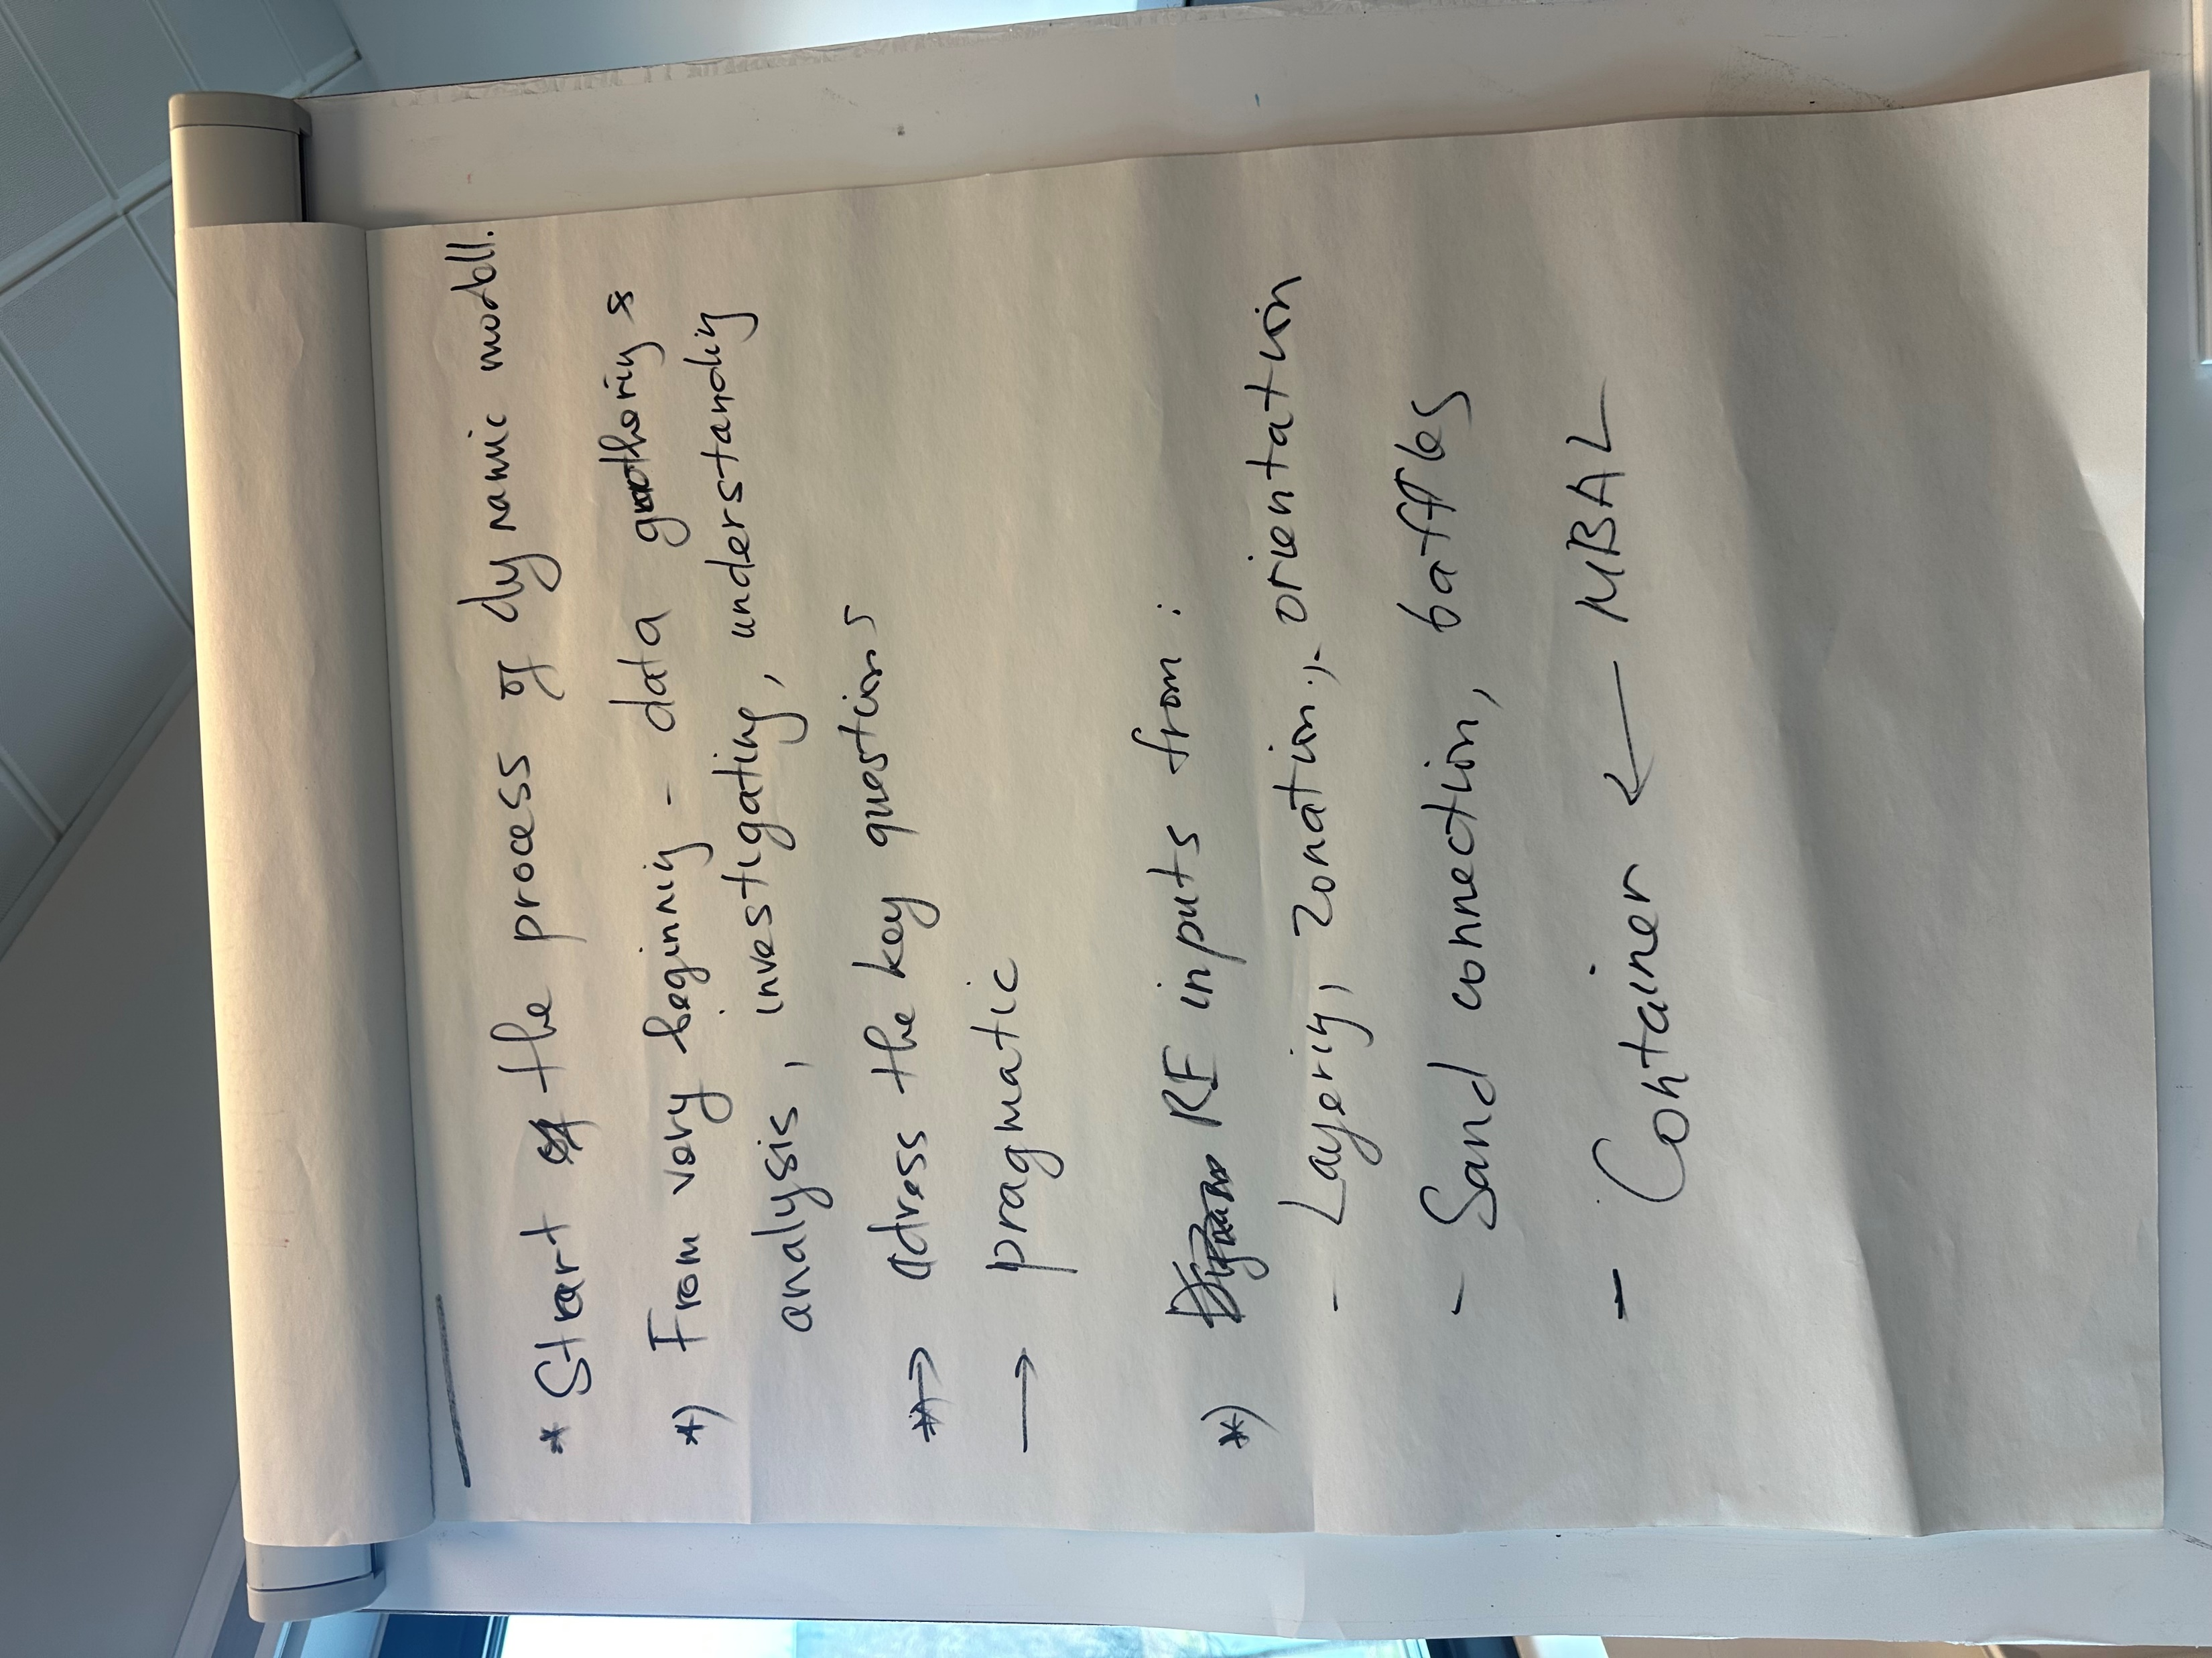 * Start of the process of dynamic modell.
*) From very beginning - data gathering &
analysis, investigating, understanding
=> adress the key questions
→ pragmatic
*) RE inputs from:
- Layering, zonation, orientation
- Sand connection, baffles
- Container ← MBAL